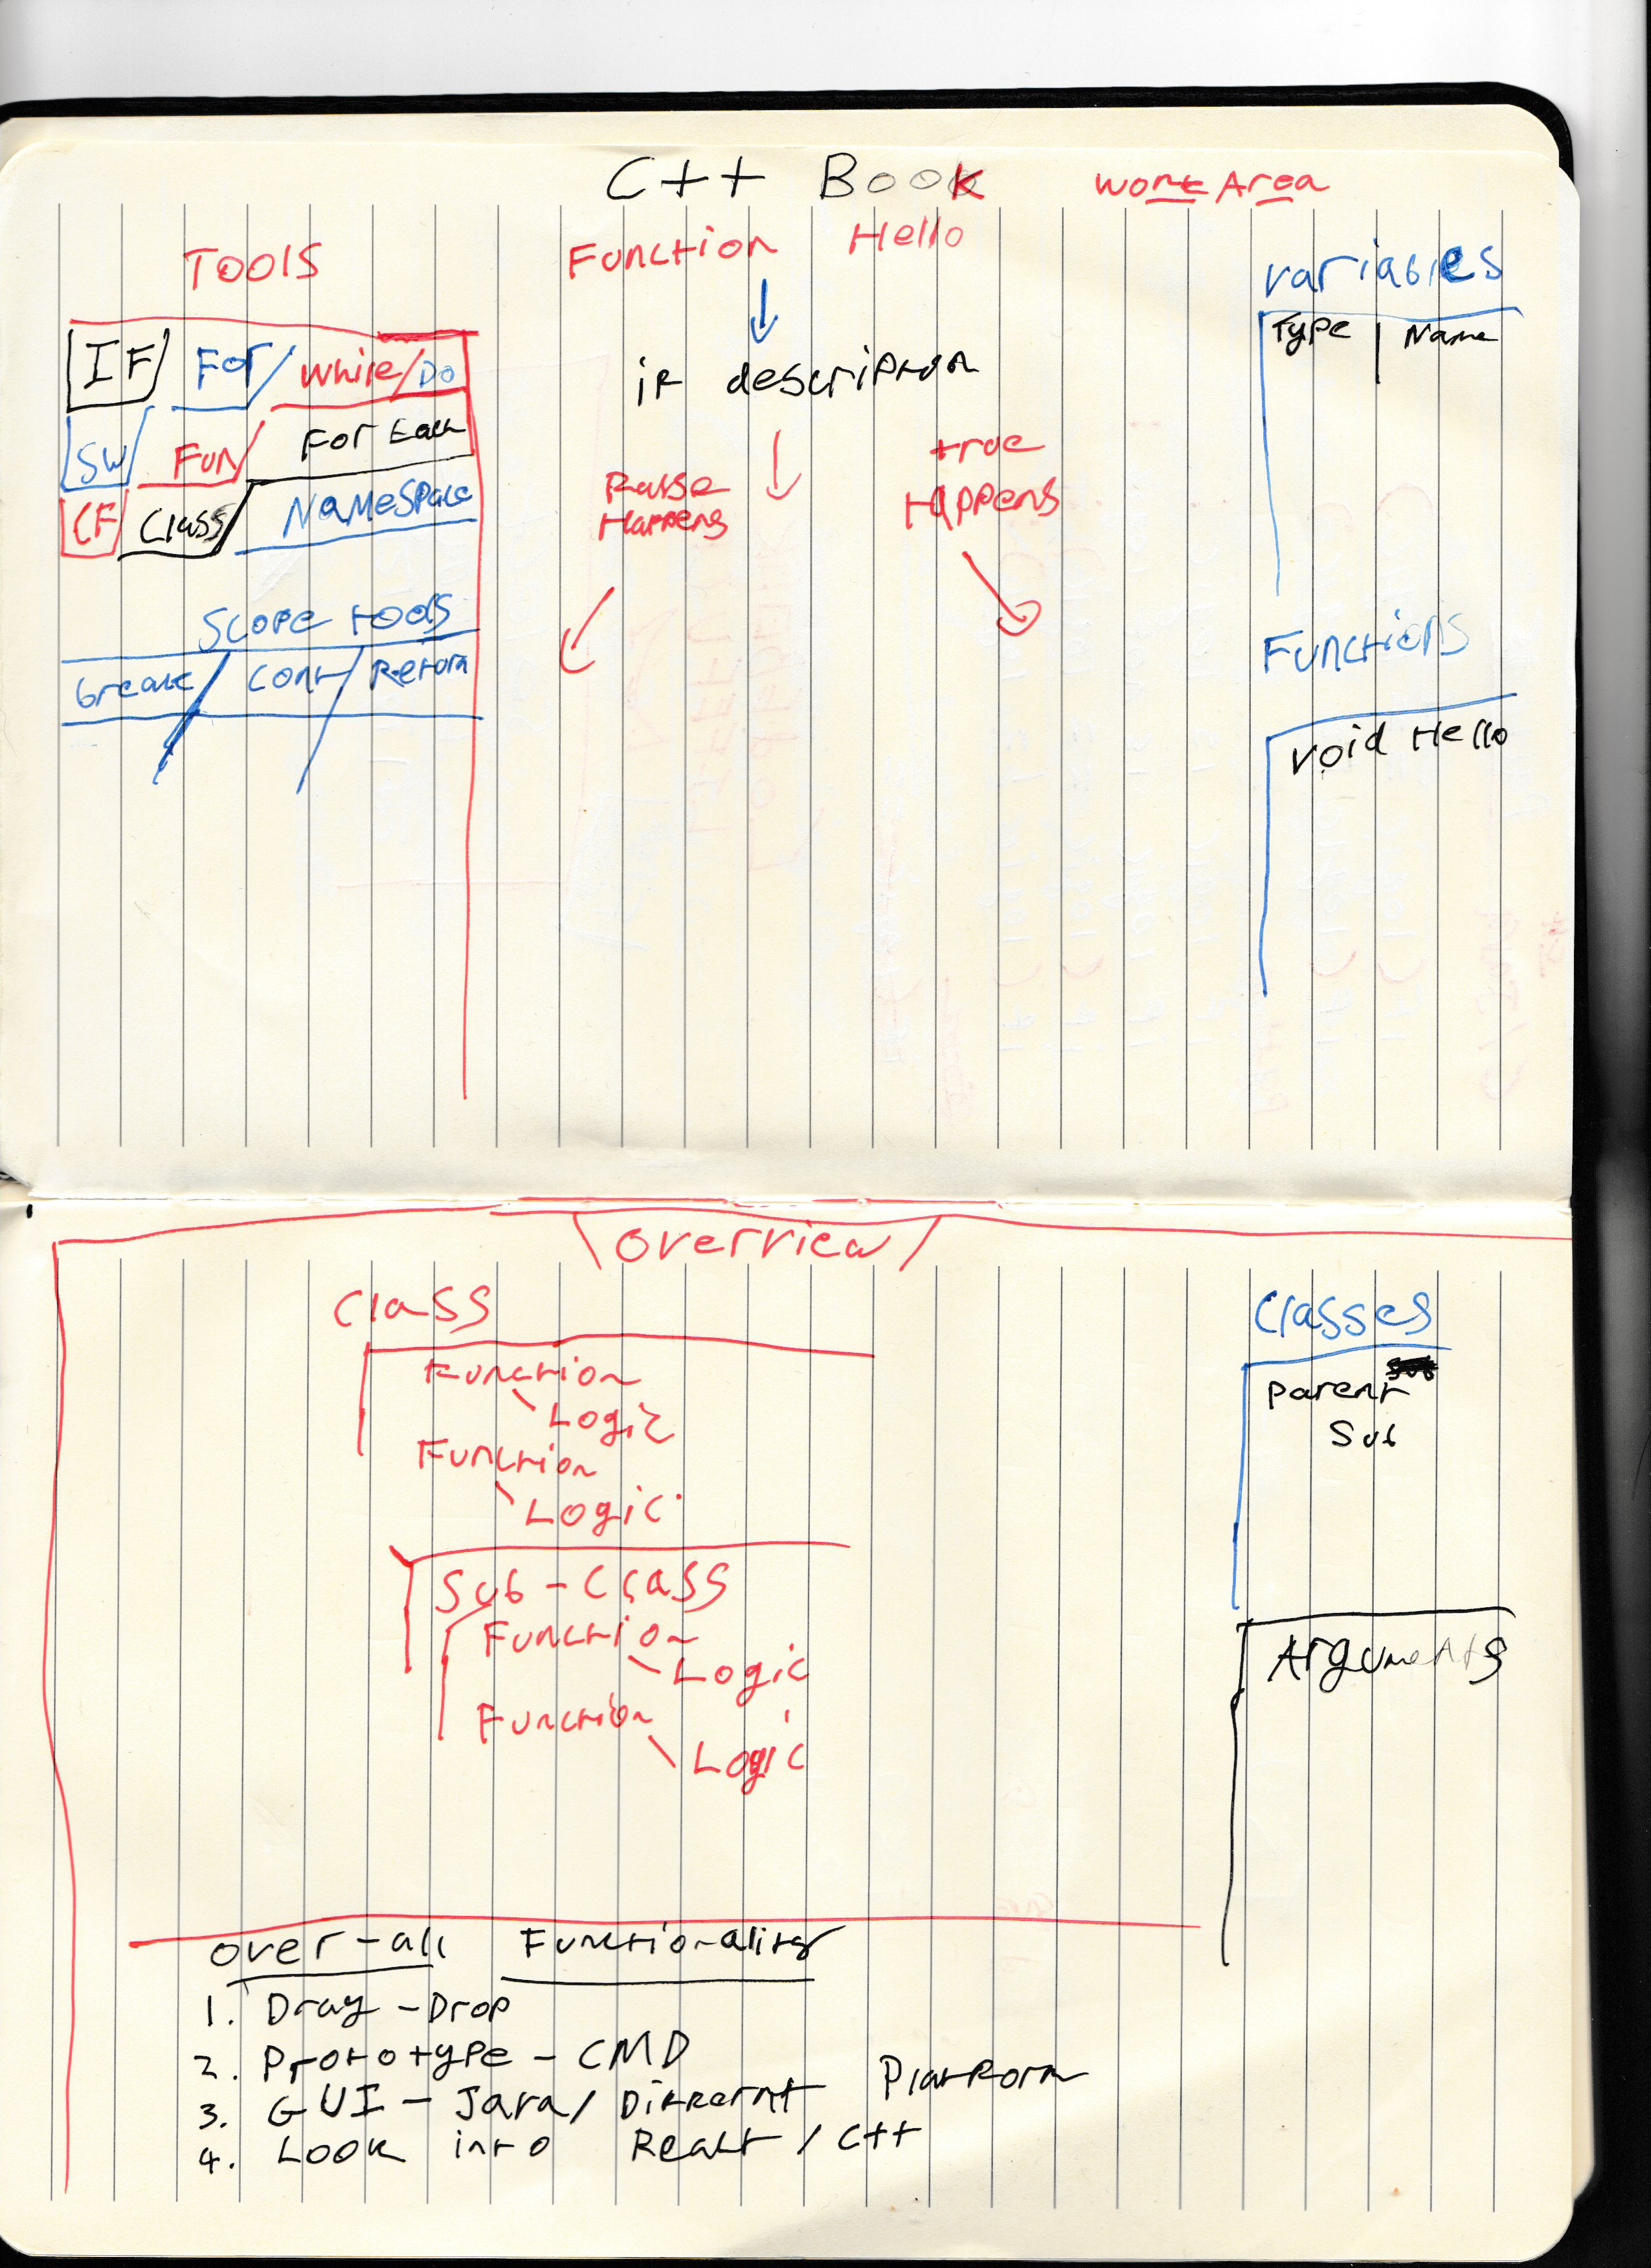 C++ Book
Work Area
TOOLS
IF For While/DO
SW Fun For Each
CF Class NameSpace
Scope tools
break Cont Return
Function Hello
if description
False
Happens
true
Happens
Variables
Type Name
Functions
void Hello
Overview
Class
Function
Logic
Function
Logic
Sub-Class
Function
Logic
Function
Logic
Classes
Parent
Sub
Arguments
Over-all Functionality
1. Drag-Drop
2. Prototype - CMD
3. GUI - Java/Differnt Platform
4. Look into React / C++